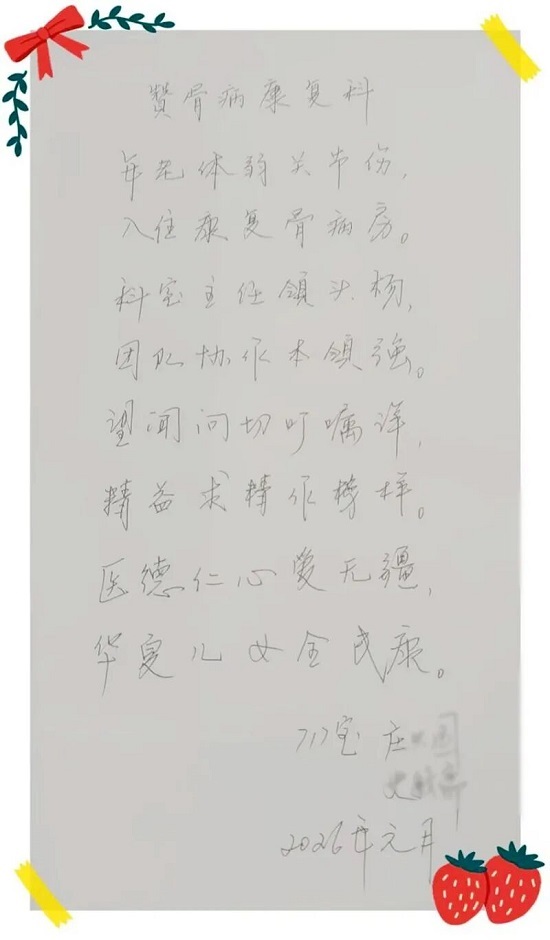 赞骨病康复科
年老体弱关节伤，
入住康复骨病房。
科室主任领头杨，
团队协作本领强。
望闻问切叮嘱详，
精益求精作榜样。
医德仁心爱无疆，
华夏儿女全民康。
717室 庄
史
2026年元月